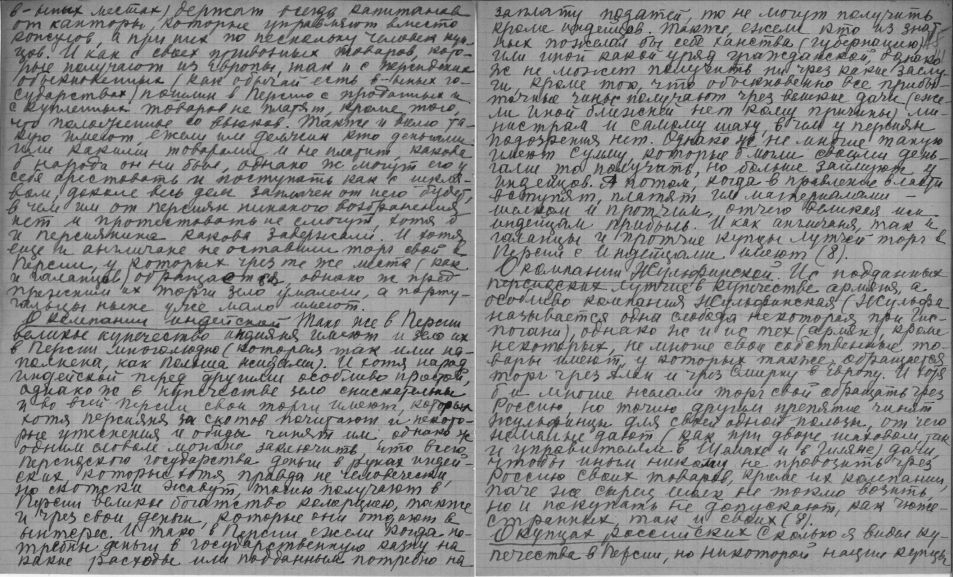 в-иных местах) держат всегда капитанов
от канторы, которые управляют вместо
консулов, а при них по нескольку человек куп-
цов. И как с своих привозных товаров, кото-
рые получают из Европы, так и с персидских
обыкновенных (как обычай есть в-иных го-
сударствах) пошлин в Персию с проданных и
с купленных товаров не платят, кроме того,
что положенное со вьюков. Также и волю та-
кую имеют, ежели им должен кто деньгами
или какими товарами и не платит, какова
б народа он ни был, однако ж могут его у
себя арестовать и поступать как о неволь-
ном, доколе весь долг заплачен от него будет,
в чем им от персиян никакого возбранения
нет и протестовать не смогут хотя б
и персиянина какова задержали. И хотя
еще и англичане не оставили торг свой в
Персии, у которых чрез те же места как
и галанцов обращается, однако ж пред
прежними их торги зело умалели, а порту-
гальцы ныне уже мало имеют.
О компании индейской Тако же в Персии
великое купечество индияня имеют и зело их
в Персии многолюдно (которая так ими на-
полнена, как Полша жидами). И хотя народ
индейской перед другими особливо простой,
однако ж в купечестве зело снискательны
и во всей Персии свои торги имеют, которых
хотя персияня за скотов почитают и некото-
рые утеснения и обиды чинят им, однако ж
одним словом можно заключить, что всего
Персидского государства деньги в руках индей-
ских, которые хотя правда не человечески,
но скотски живут, токмо получают в
Персии великое богатство комерциею, також
и чрез свои деньги, которые они отдают в
интерес. И тако в Персии ежели когда по-
требны деньги в государственную казну на
какие расходы или подданным потребно на
заплату податей, то не могут получить
кроме индейцов. Также, ежели кто из знат-
ных пожелал бы себе ханства (губернацию)
или иной какой уряд гражданской, однако
ж не может получить ни чрез какие заслу-
ги, кроме того, что обыкновенно все прибы-
точные чины получают чрез великие дачи (еже-
ли иной ближней нет кому причины) ми-
нистрам и самому шаху, в чем у персиян
подозрения нет. Однако ж не многие такую
имеют сумму, которые б могли своими день-
гами то получить, но больше займуют у
индейцов. А потом, когда в правление власти
вступят, платят им материалами –
шелком и протчим, отчего великая им
индейцам прибыль. И как агличаня, так и
галанцы и протчие купцы лутчей торг в
Персии с Индейцами имеют (8).
О компании Жулфинской. Ис подданных
персидских лутчие в купечестве армяня, а
особливо компания Жулфинская (Жульфа
называется одна слобода некоторая при Ис-
погани), однако ж и ис тех (армян), кроме
некоторых, не многие свои собственные то-
вары имеют, у которых также обращается
торг чрез Алеп и чрез Смирну в Европу. И хотя
и многие желали торг свой обращать чрез
Россию, но токмо другим препятие чинят
жулфинцы для своей одной пользы, от чего
немалые дают (как при дворе шаховом, так
и управителем в Шемахе и в Гиляне) дачи,
чтобы иным никому не провозить чрез
Россию своих товаров, кроме их компании,
паче же сырец шелк не токмо возить,
но и покупать не допускают, как чюже-
странных, так и своих (8).
О купцах российских Сколько я видел ку-
печества в Персии, но никоторой нации купцы